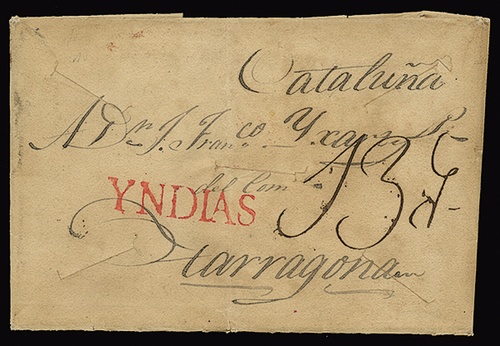 Cataluña
A Dn J. Franco Yxar
del Com
YNDIAS
Tarragona